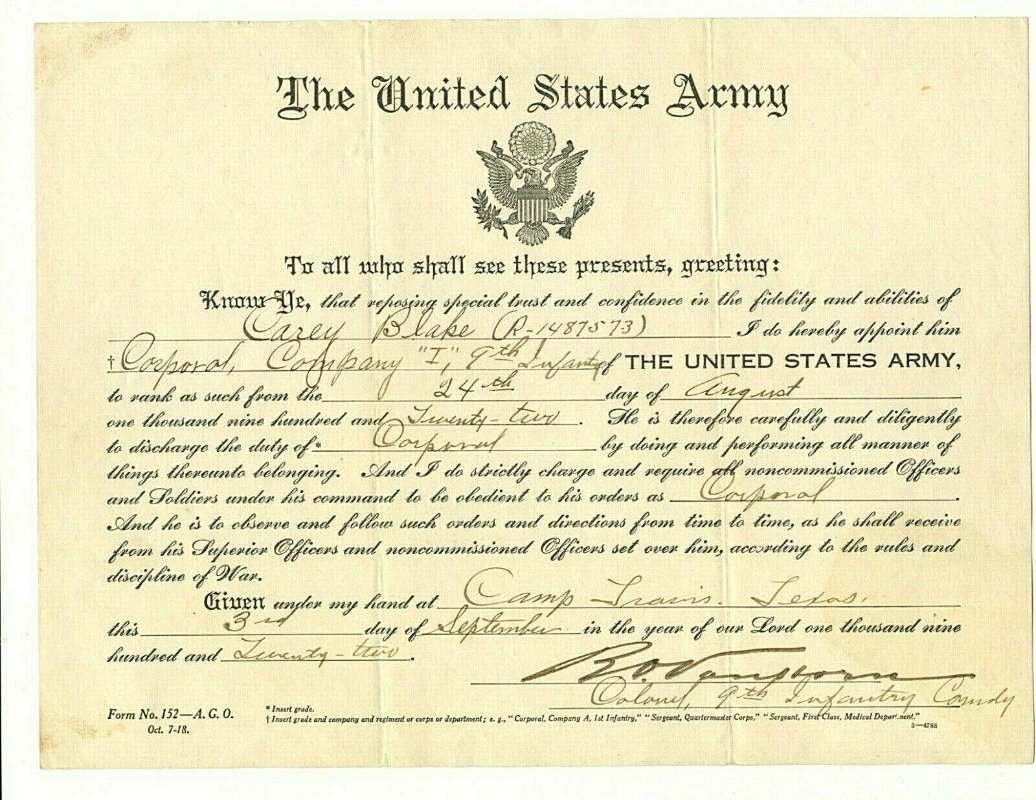 The United States Army
To all who shall see these presents, greeting:
Know Ye, that reposing special trust and confidence in the fidelity and abilities of
Carey Blake (R-1487573) I do hereby appoint him
† Corporal, Company "I", 9th Infantry of THE UNITED STATES ARMY,
to rank as such from the 24th day of August
one thousand nine hundred and Twenty-two. He is therefore carefully and diligently
to discharge the duty of* Corporal by doing and performing all manner of
things thereunto belonging. And I do strictly charge and require all noncommissioned Officers
and Soldiers under his command to be obedient to his orders as Corporal.
And he is to observe and follow such orders and directions from time to time, as he shall receive
from his Superior Officers and noncommissioned Officers set over him, according to the rules and
discipline of War.
Given under my hand at Camp Travis. Texas.
this 3rd day of September in the year of our Lord one thousand nine
hundred and Twenty-two.
Colonel, 9th Infantry Comdg
* Insert grade.
Form No. 152—A.G.O.
† Insert grade and company and regiment or corps or department; e. g., "Corporal, Company A, 1st Infantry," "Sergeant, Quartermaster Corps," "Sergeant, First Class, Medical Department."
Oct. 7-18.
3—4788